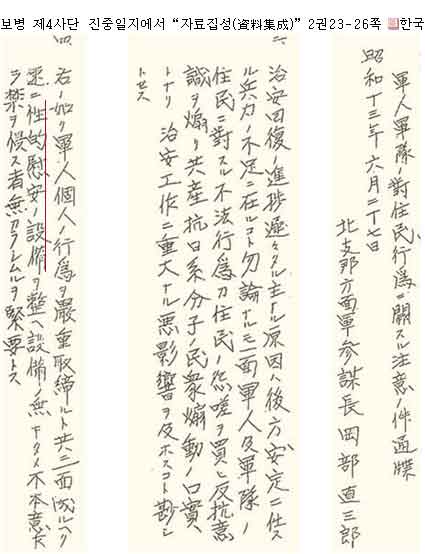 보병 제4사단 진중일지에서 “자료집성(資料集成)” 2권23-26쪽 한국
軍人軍隊ノ對住民行爲ニ關スル注意ノ件通牒
昭和十三年六月二十七日
北支那方面軍參謀長 岡部直三郎
二、
治安回復ノ進捗遲々タル主ナル原因ハ後方安定ニ任ス
ル兵力ノ不足ニ在ルコト勿論ナルモ一面軍人及軍隊ノ
住民ニ對スル不法行爲カ住民ノ怨嗟ヲ買ヒ反抗意
識ヲ煽リ共産抗日系分子ノ民衆煽動ノ口實
トナリ 治安工作ニ重大ナル悪影響ヲ及ホスコト尠シ
トセス
四、
右ノ如ク軍人個人ノ行爲ヲ嚴重取締ルト共ニ一面成ルヘク
速ニ性的慰安ノ設備ヲ整ヘ設備ノ無キタメ不本意乍
ラ禁ヲ侵ス者無カラシムルヲ緊要トス